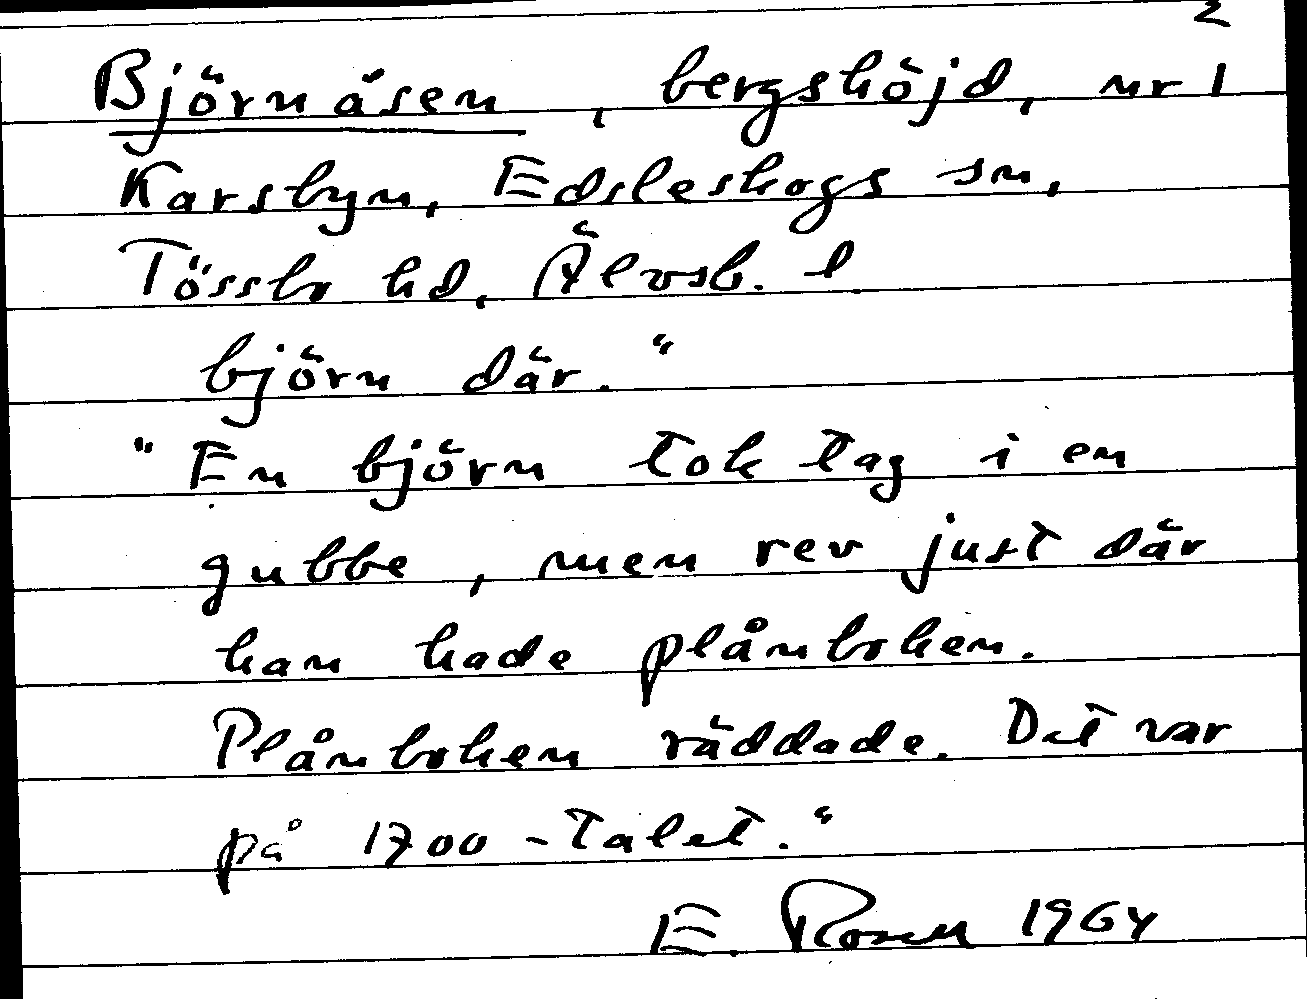 2
Björnåsen, bergshöjd, nr 1
Karsbyn, Edsleskogs sn,
Tössbo hd, Älvsb. l.
björn där."
"En björn tok tag i en
gubbe, men rev just där
han hade plånboken.
Plånboken räddade. Det var
på 1700-talet."
E. Rosen 1964